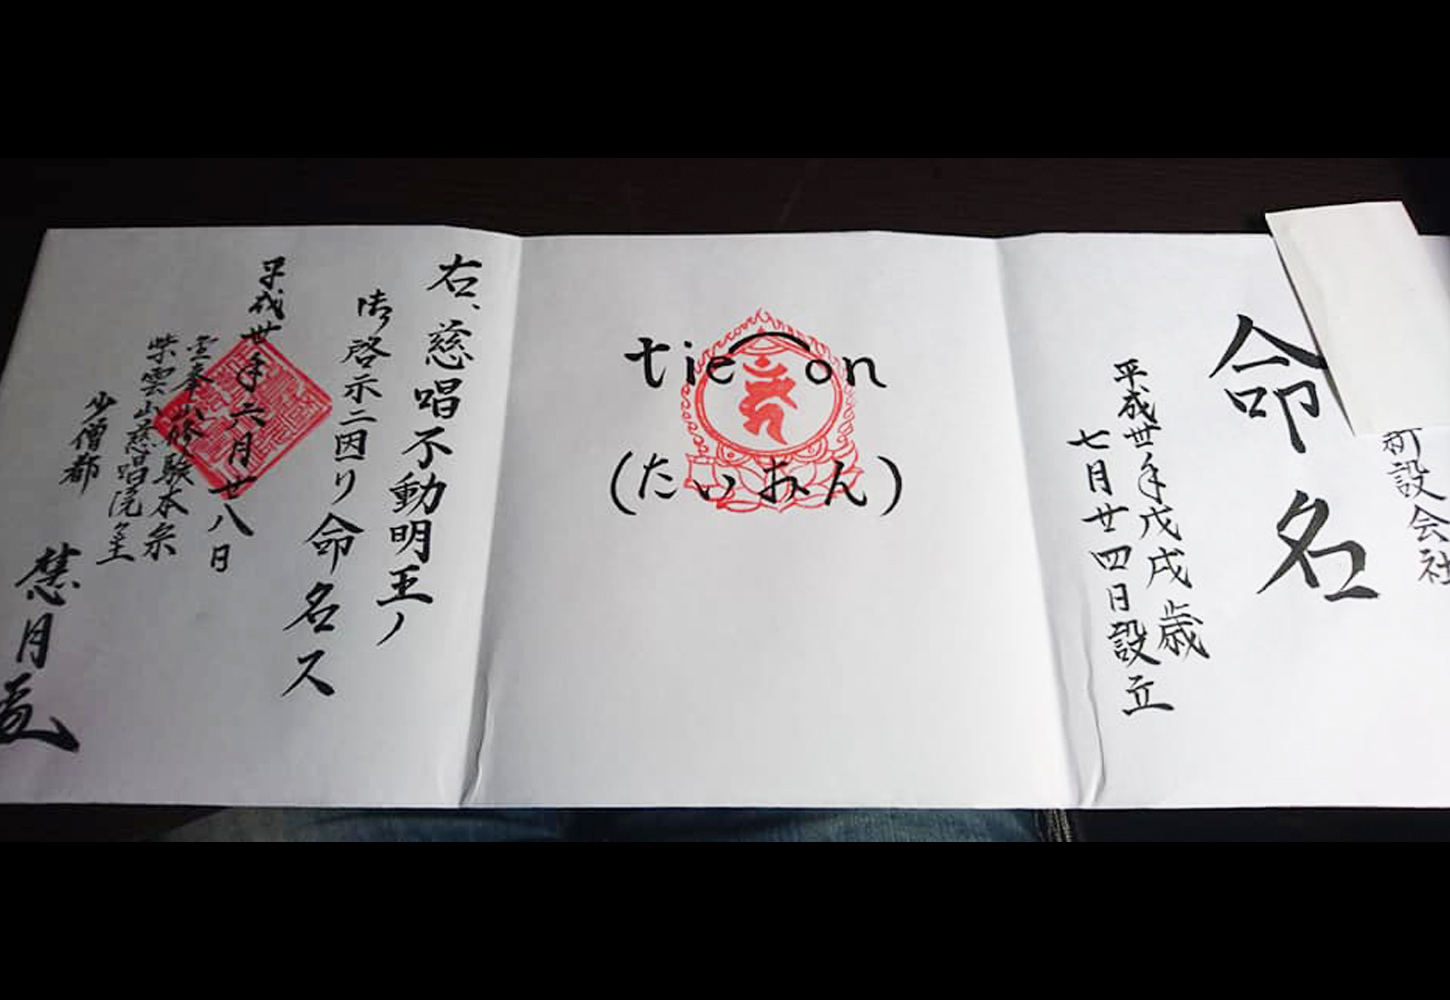 新設会社
命名
平成卅年戊戌歳
七月廿四日設立
tie on
(たいおん)
右、慈唱不動明王ノ
御啓示ニ因リ命名ス
平成卅年六月廿八日
修験本宗
紫雲山慈唱院々主
少僧都
慧月